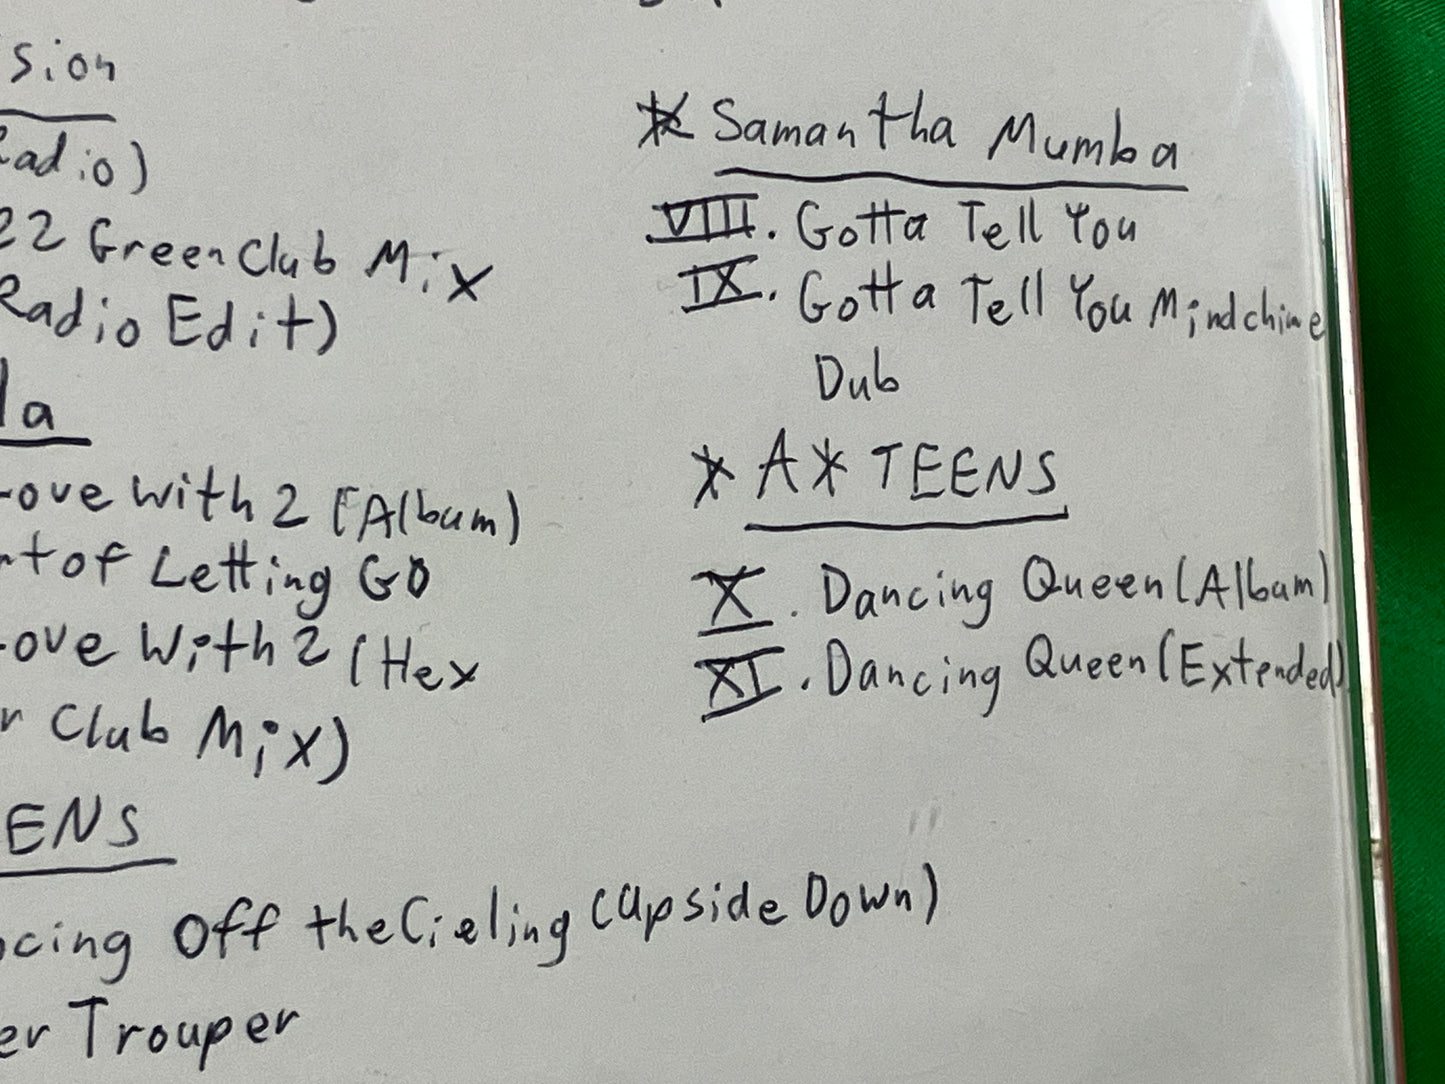 sion
Radio)
22 Green Club Mix
Radio Edit)
la
Love With 2 (Album)
rt of Letting GO
Love With 2 (Hex
r Club Mix)
ENS
ncing Off the Cieling (Upside Down)
er Trouper
* Samantha Mumba
VIII. Gotta Tell You
IX. Gotta Tell You Mindchime
Dub
* A* TEENS
X. Dancing Queen (Album)
XI. Dancing Queen (Extended)